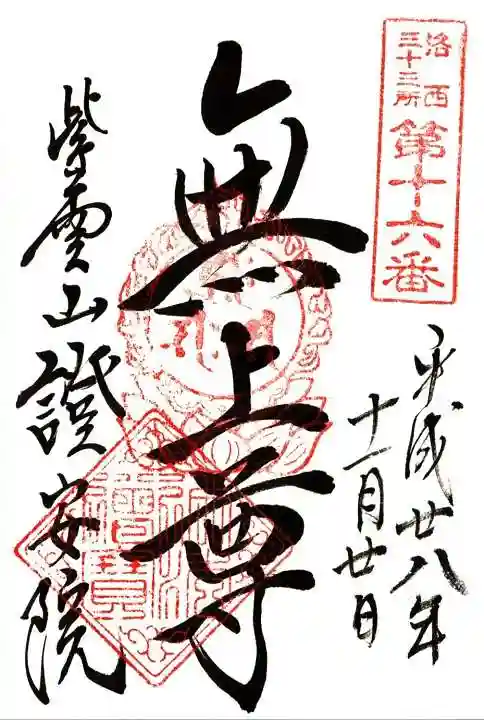 洛西
三十三所
第十六番
平成廿八年
十一月廿日
無上尊
紫雲山證安院
佛法
僧寶